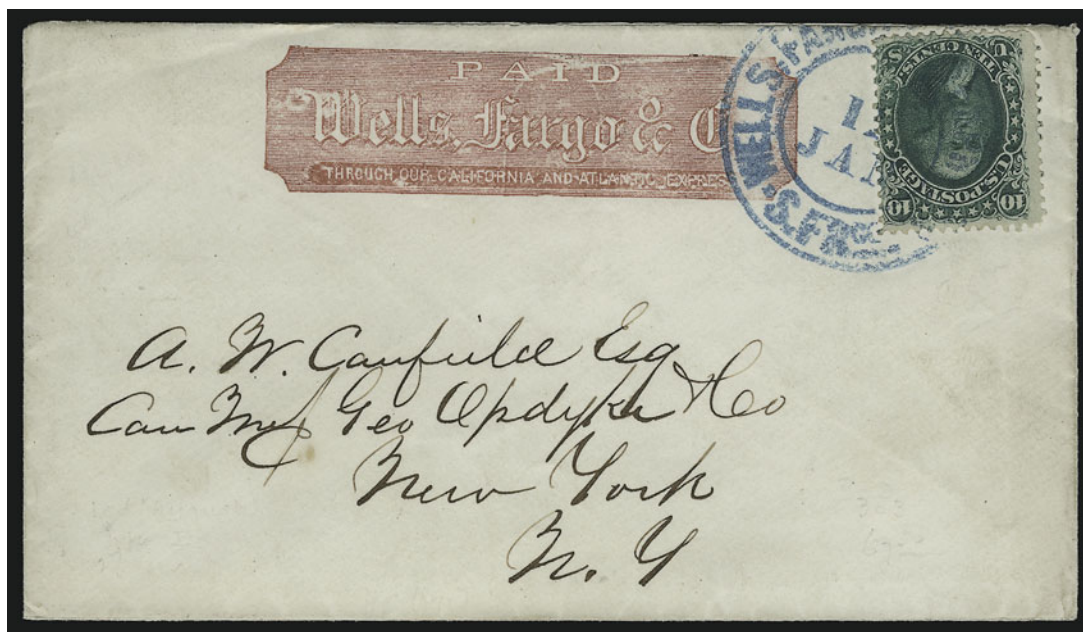 PAID
Wells, Fargo & C
THROUGH OUR CALIFORNIA AND ATLANTIC EXPRES
WELLS, FARGO
JAN
S. FR
U S
TEN CENTS.
U.S. POSTAGE
10 10
A. W. Canfield Esq
Care Geo Opdyke & Co
New York
N. Y